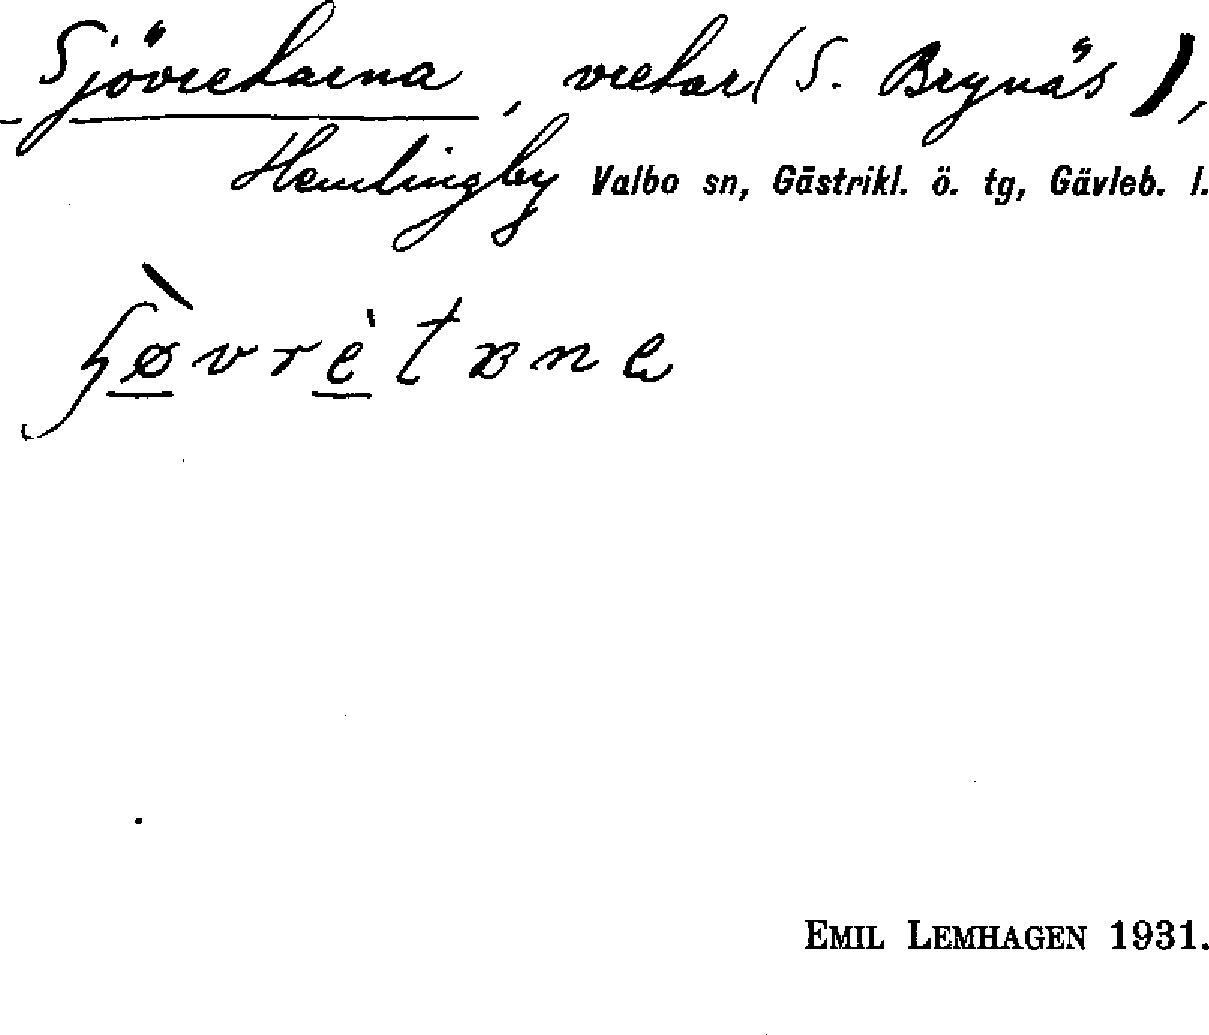 Sjövretarna, vretar (S. Brynäs),
Hemlingby Valbo sn, Gästrikl. ö. tg, Gävleb. l.
EMIL LEMHAGEN 1931.